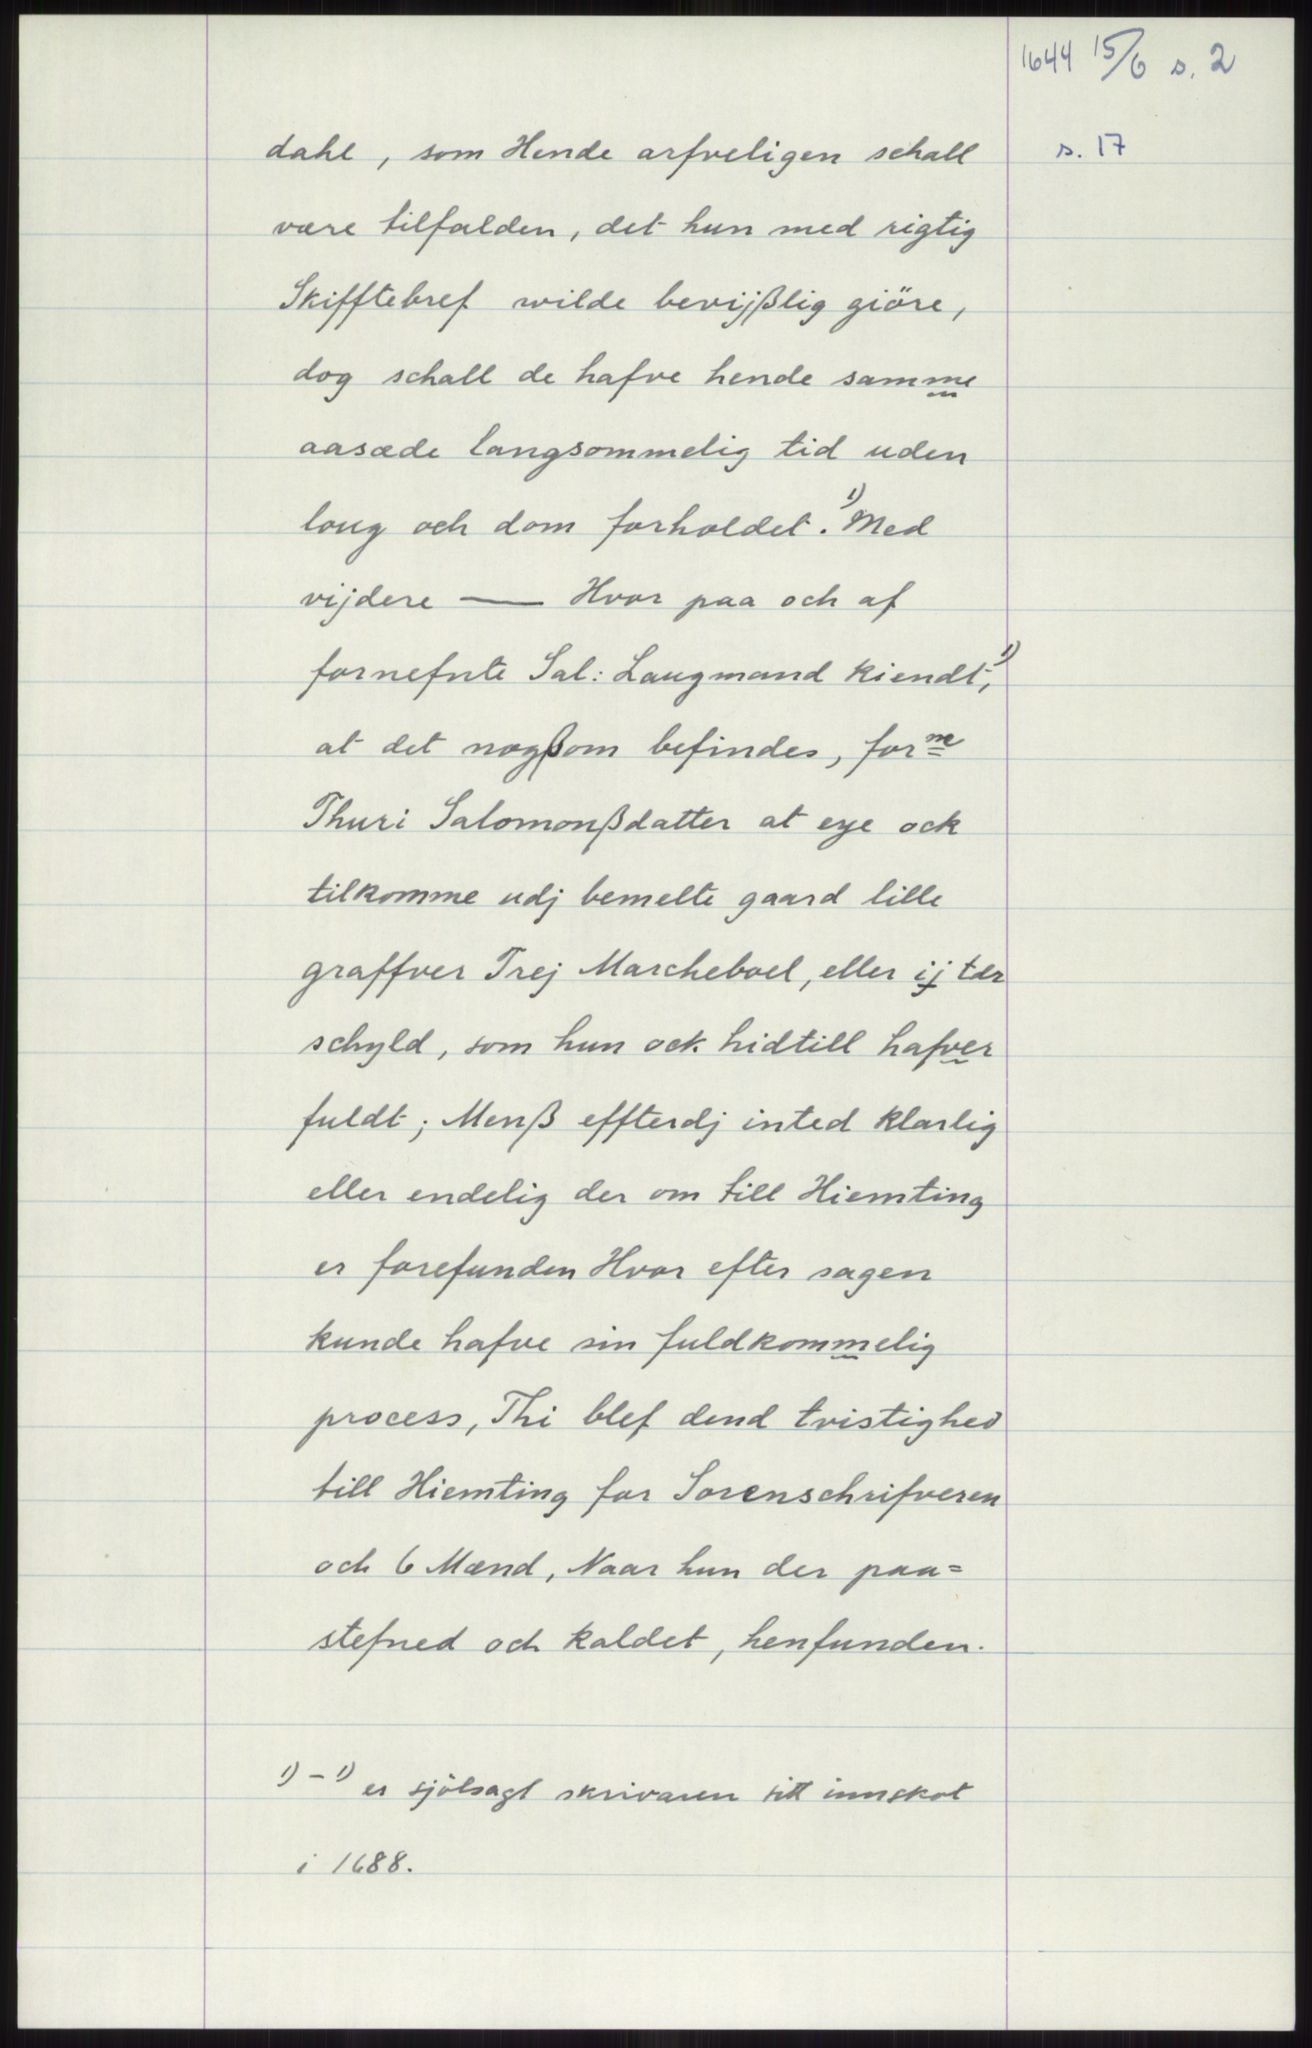 1644 15/6 s. 2
dahl, som Hende arfveligen schall
s. 17
være tilfalden, det hun med rigtig
Skifftebref wilde bevijßlig giöre,
dog schall de hafve hende samme
aasæde langsommelig tid uden
loug och dom forholdet. 1) Med
vijdere — Hvor paa och af
fornefnte Sal: Laugmand kiendt, 1)
at det nogßom befindes, for me
Thuri Salomonßdatter at eye ock
tilkomme udj bemelte gaard lille
graffver Trej Marcheboel, eller ij tdr
schyld, som hun ock hidtill hafver
fuldt; Menß effterdj inted klarlig
eller endelig der om till Hiemting
er forefunden Hvor efter sagen
kunde hafve sin fuldkommelig
process, Thi blef dend tvistighed
till Hiemting for Sorenschrifveren
och 6 Mænd, Naar hun der paa=
stefned och kaldet, henfunden.
1) - 1) er sjölsagt skrivaren sitt innskot
i 1688.